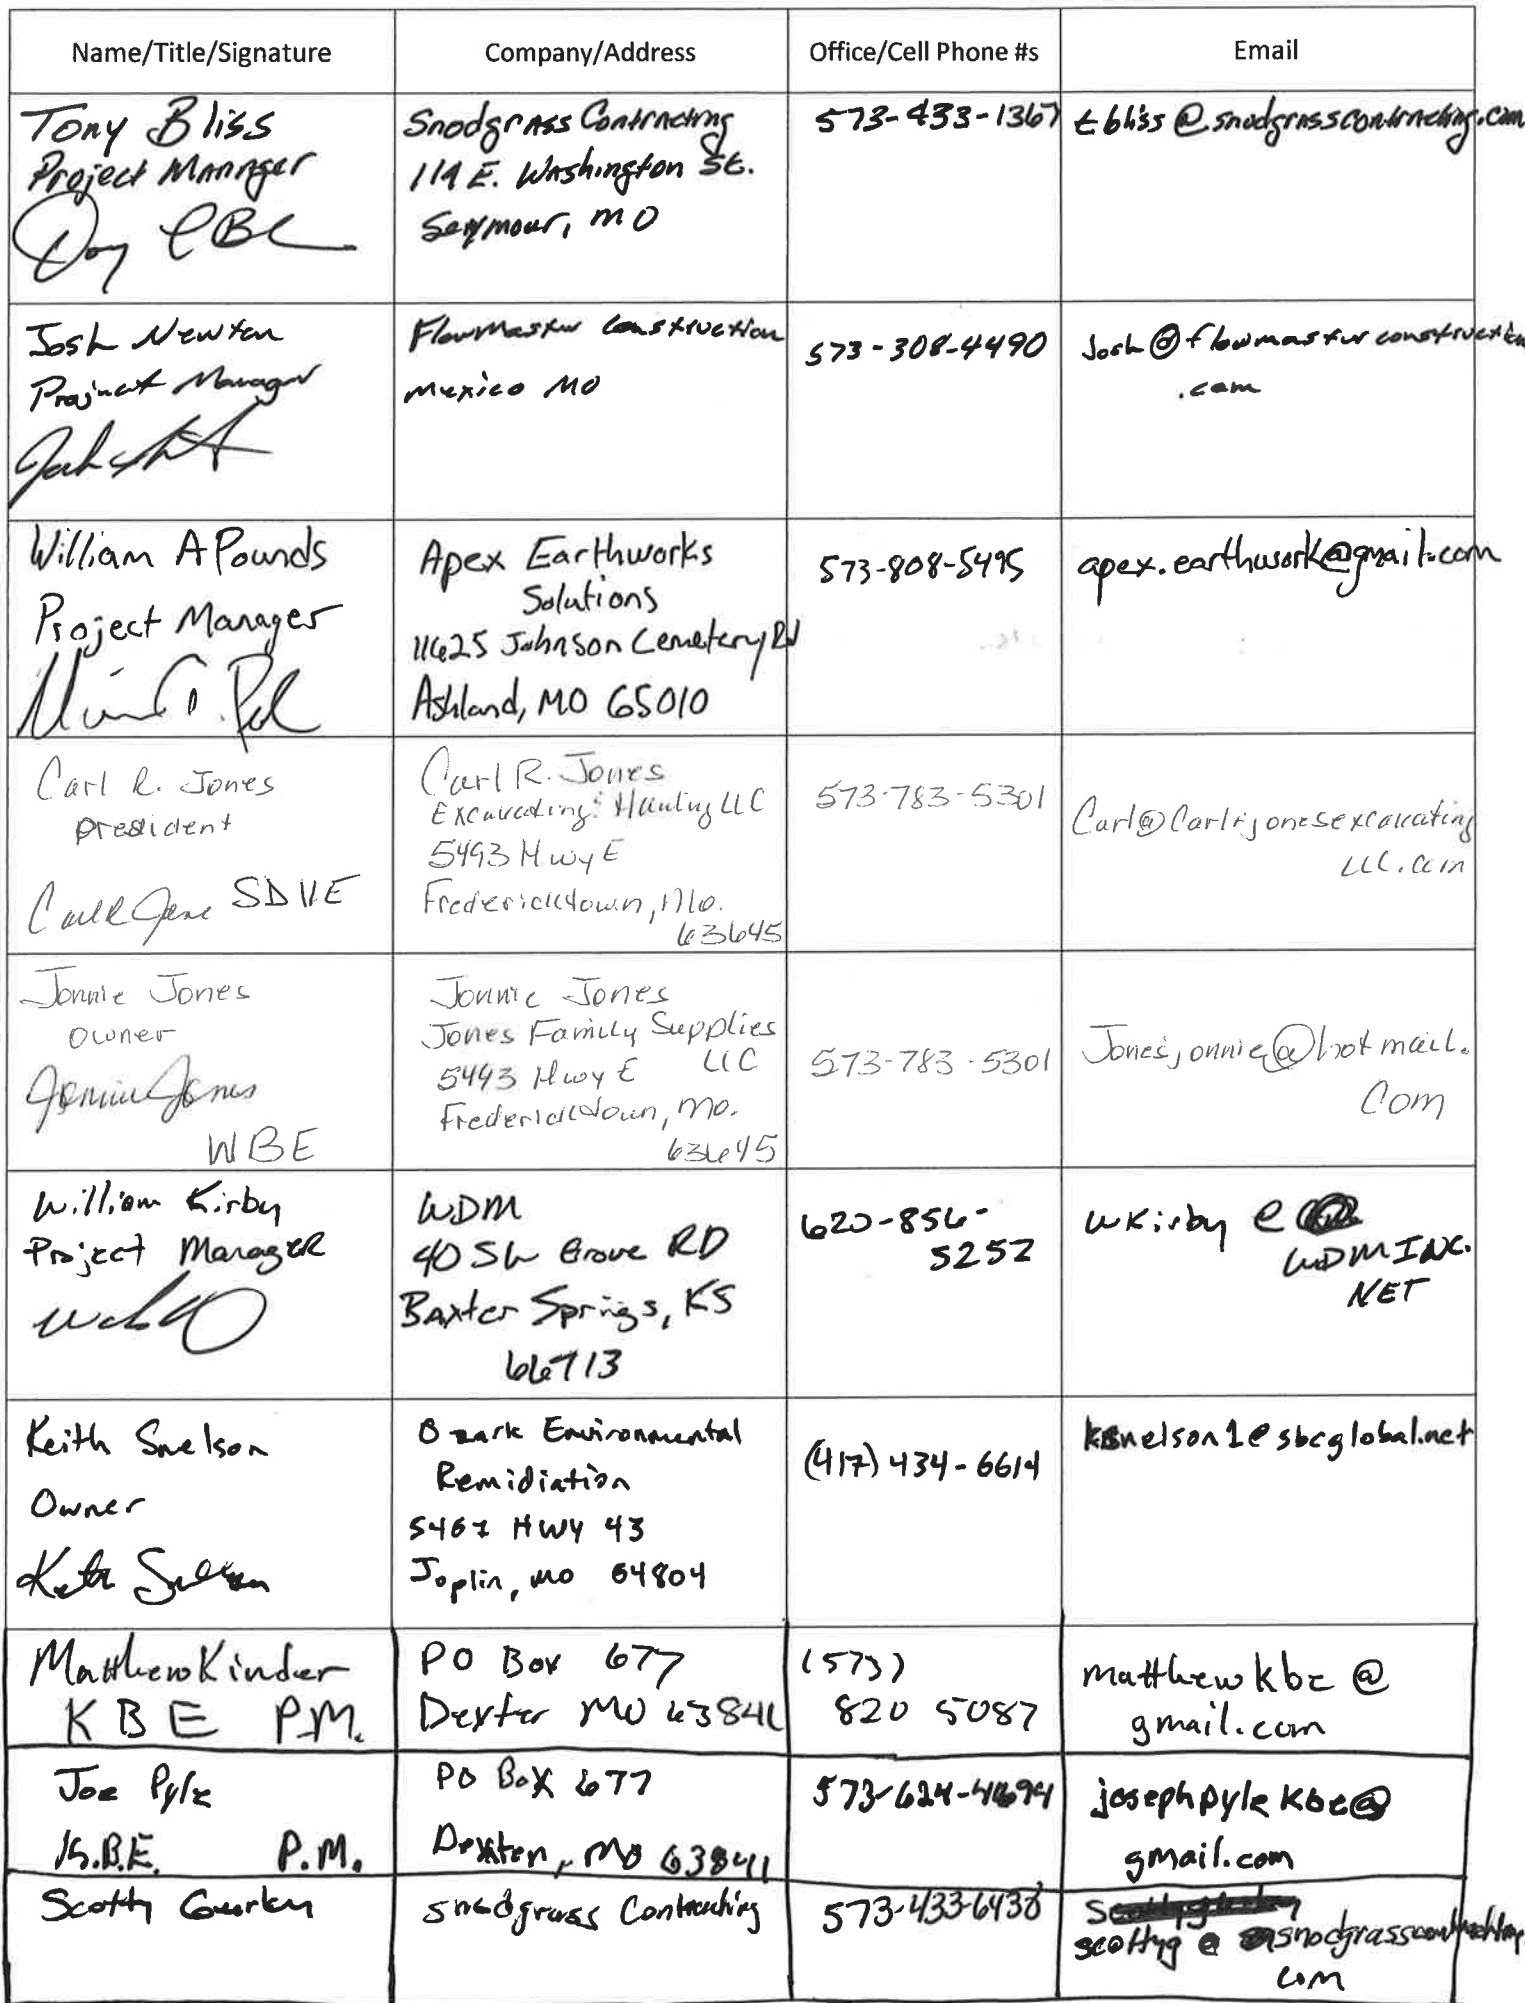 Name/Title/Signature
Company/Address
Office/Cell Phone #s
Email
Tony Bliss
Project Manager
Snodgrass Contracting
119 E. Washington St.
Seymour, MO
573-433-1367
tbliss@snodgrasscontracting.com
Josh Newton
Project Manager
Flowmaster Construction
Mexico MO
573-308-4490
Josh@flowmasterconstruction
.com
William A Pounds
Project Manager
Apex Earthworks
Solutions
11625 Johnson Cemetery Rd
Ashland, MO 65010
573-808-5495
apex.earthwork@gmail.com
Carl R. Jones
president
SDVE
Carl R. Jones
Excavating & Hauling LLC
5493 Hwy E
Fredericktown, Mo.
63645
573-783-5301
Carl@Carlrjonesexcavating
LLC.com
Jonnie Jones
owner
Jonnie Jones
WBE
Jonnie Jones
Jones Family Supplies
LLC
5493 Hwy E
Fredericktown, Mo.
63645
573-783-5301
Jonesjonnie@hotmail.
Com
William Kirby
Project Manager
WDM
40 SW Grove RD
Baxter Springs, KS
66713
620-856-
5252
wkirby@
WDMINC.
NET
Keith Snelson
Owner
Keith Snelson
Ozark Environmental
Remidiation
5467 HWY 43
Joplin, MO 64804
(417) 434-6614
ksnelson1@sbcglobal.net
Matthew Kinder
KBE P.M.
PO Box 677
Dexter MO 63841
(573)
820 5087
matthewkbe@
gmail.com
Joe Pyle
K.B.E. P.M.
PO Box 677
Dexter, MO 63841
573-624-4694
josephpylekbe@
gmail.com
Scotty
Snodgrass Contracting
573-433-6438
scottyg@snodgrasscontracting
com